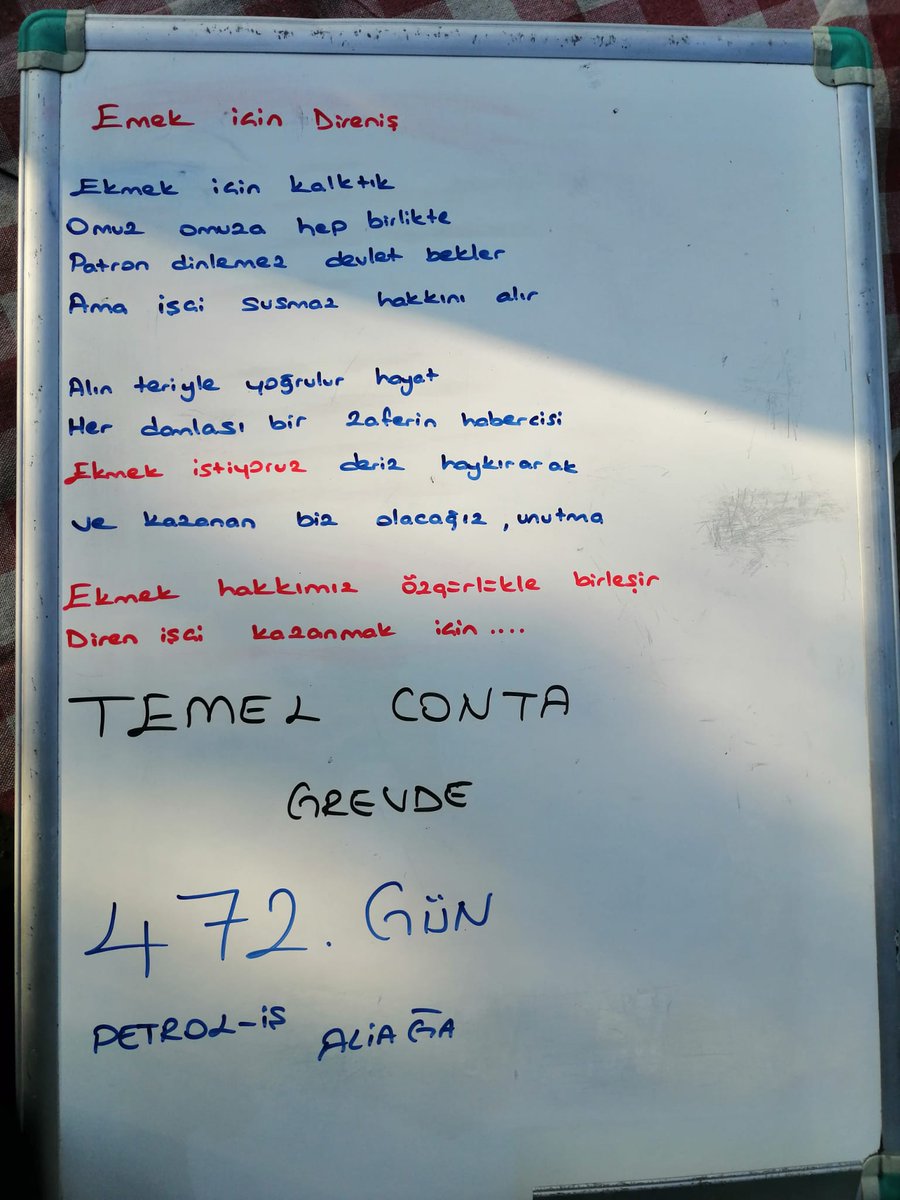 Emek için Direniş
Ekmek için kalktık
Omuz omuza hep birlikte
Patron dinlemez devlet bekler
Ama işçi susmaz hakkını alır
Alın teriyle yoğrulur hayat
Her damlası bir zaferin habercisi
Ekmek istiyoruz deriz haykırarak
ve kazanan biz olacağız, unutma
Ekmek hakkımız özgürlükle birleşir
Diren işçi kazanmak için....
TEMEL CONTA
GREVDE
472. GÜN
PETROL-İŞ ALİAĞA